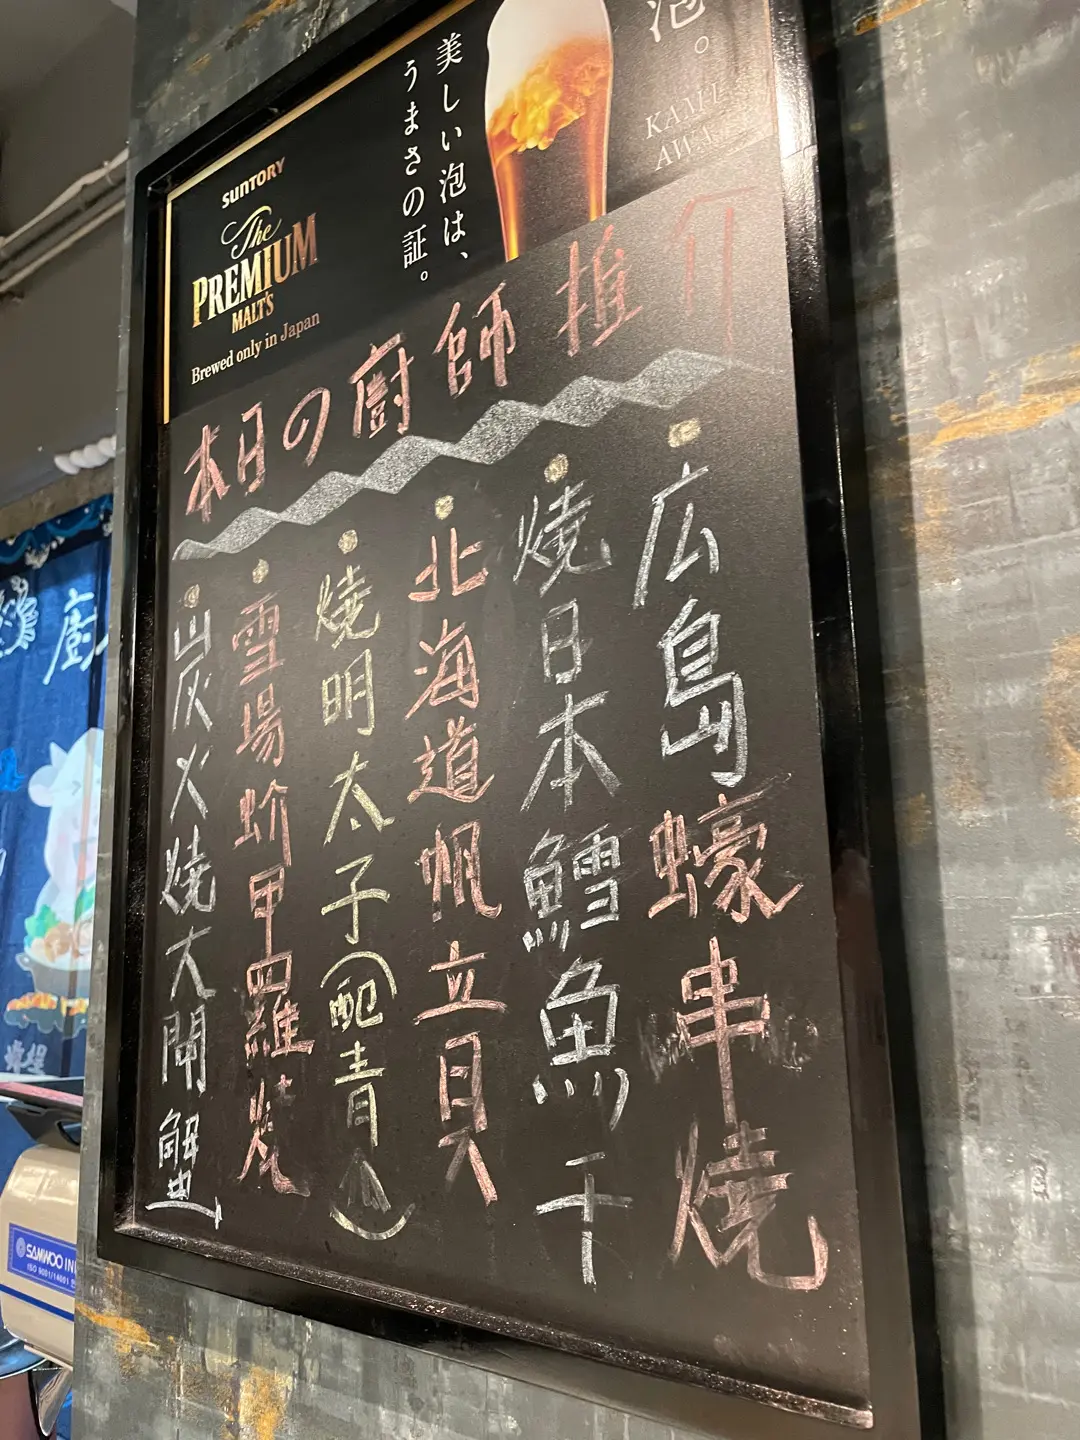 泡。
KAMI
AWA
美しい泡は、
うまさの証。
SUNTORY
The
PREMIUM
MALT'S
Brewed only in Japan
本日の廚師推介
広島蠔串燒
燒日本鱈魚干
北海道帆立貝
燒明太子(配青瓜)
雪場蚧甲羅燒
炭火燒大閘蟹
廚
SAMWOO IN
ISO 9001/14001